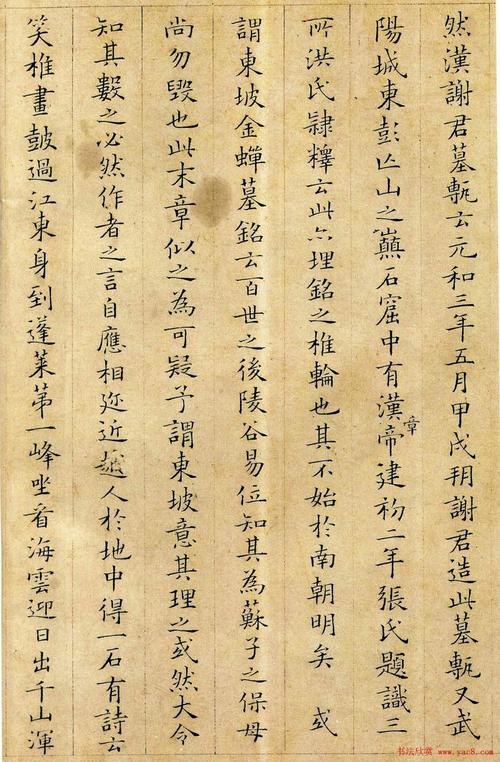 然漢謝君墓甎云元和三年五月甲戌朔謝君造此墓甎又武
陽城東彭亡山之巔石窟中有漢章帝建初二年張氏題識三
所洪氏隸釋云此亦埋銘之椎輪也其不始於南朝明矣 或
謂東坡金蟬墓銘云百世之後陵谷易位知其為蘇子之保母
尚勿毀也此末章似之為可疑予謂東坡意其理之或然大令
知其數之必然作者之言自應相近越人於地中得一石有詩云
笑椎畫鼓過江東身到蓬萊第一峰坐看海雲迎日出千山渾
书法欣赏 www.yac8.com